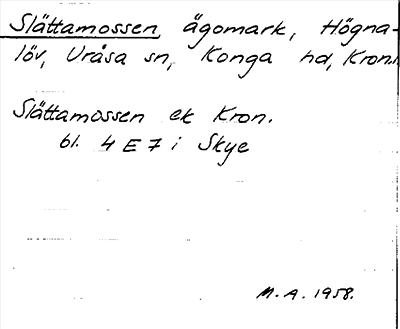 Slättamossen, ägomark, Högna-
löv, Uråsa sn, Konga hd, Kron.
Slättamossen ek Kron.
bl. 4 E 7 i Skye
M.A. 1958.